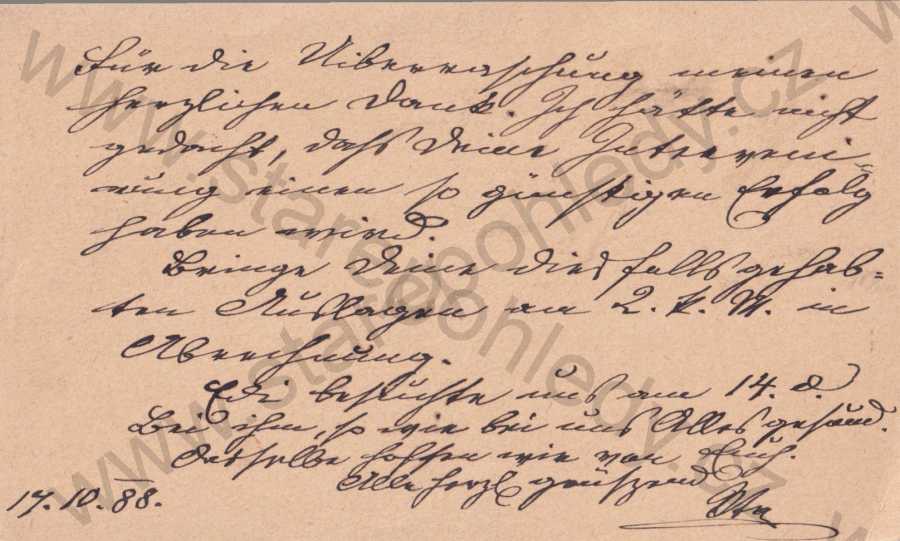 Für die Uiberraschung meinen
herzlichen Dank. Ich hätte nicht
gedacht, daß Deine Interveni-
rung einen so günstigen Erfolg
haben wird.
Bringe Deine diesfalls gehab-
ten Auslagen am 2. k. M. in
Abrechnung.
Edi besuchte uns am 14. d.
Bei ihm, so wie bei uns Alles gesund.
Dasselbe hoffen wir von Euch.
Alle herzl grüßend
17.10.88.
www.starepohledy.cz
www.starepohledy.cz